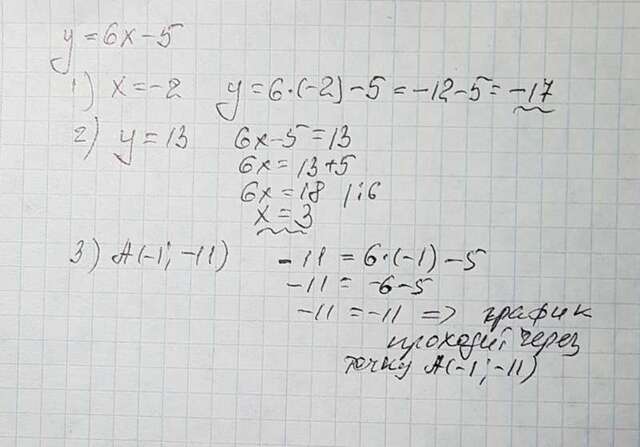 y = 6x - 5
1) x = -2 y = 6·(-2) - 5 = -12 - 5 = -17
2) y = 13 6x - 5 = 13
6x = 13 + 5
6x = 18 | : 6
x = 3
3) A(-1; -11) -11 = 6·(-1) - 5
-11 = -6 - 5
-11 = -11 => график
проходит через
точку A(-1; -11)